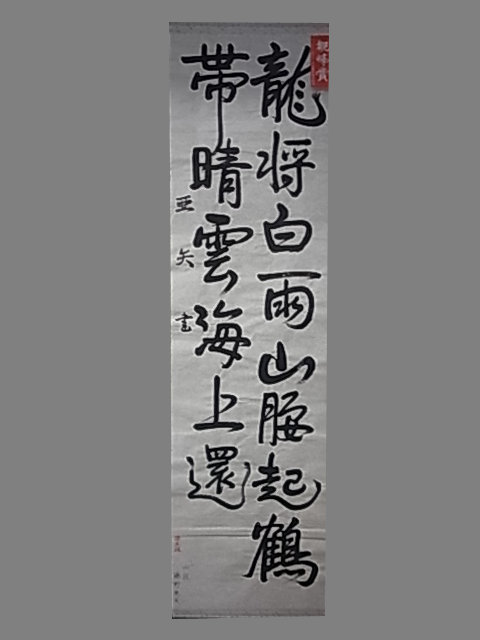 龍将白雨山腰起鶴
帯晴雲海上還
亜矢書